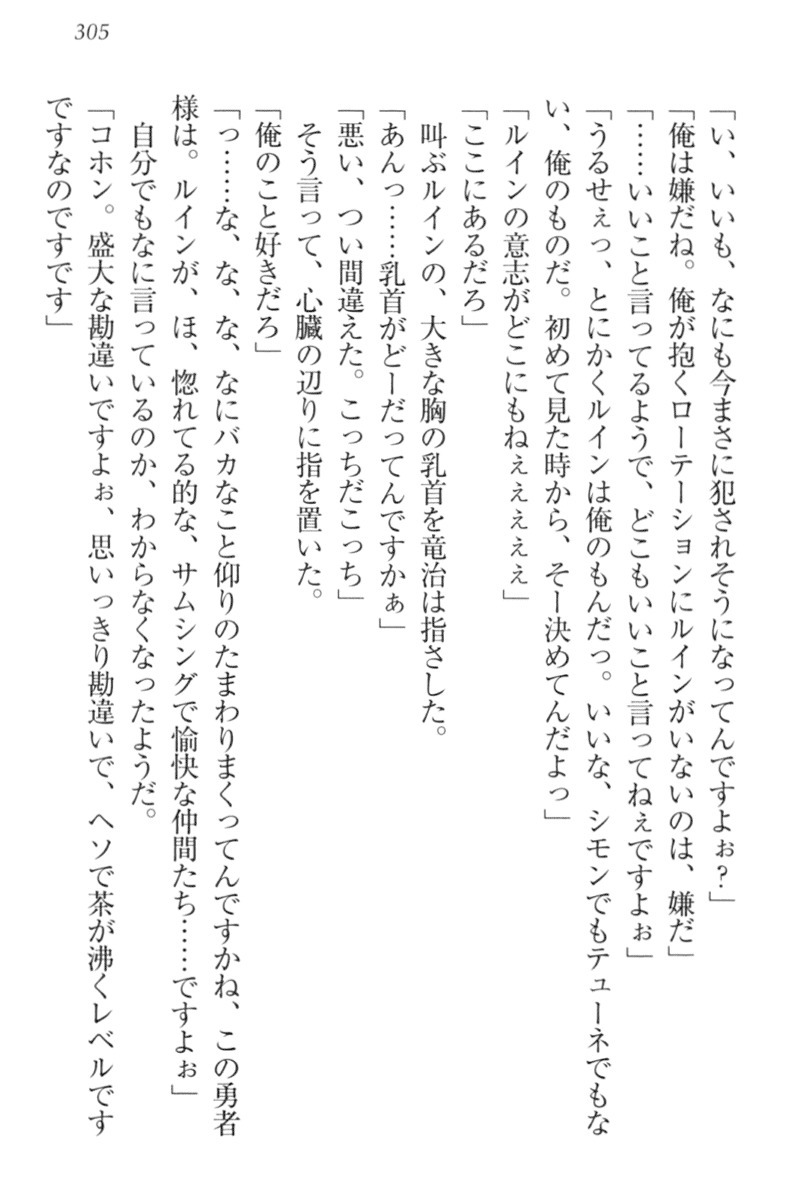 305
「い、いいも、なにも今まさに犯されそうになってんですよぉ?」
「俺は嫌だね。俺が抱くローテーションにルインがいないのは、嫌だ」
「……いいこと言ってるようで、どこもいいこと言ってねぇですよぉ」
「うるせぇっ、とにかくルインは俺のもんだっ。いいな、シモンでもテューネでもな
い、俺のものだ。初めて見た時から、そー決めてんだよっ」
「ルインの意志がどこにもねぇぇぇぇぇ」
「ここにあるだろ」
　叫ぶルインの、大きな胸の乳首を竜治は指さした。
「あんっ……乳首がどーだってんですかぁ」
「悪い、つい間違えた。こっちだこっち」
　そう言って、心臓の辺りに指を置いた。
「俺のこと好きだろ」
「っ……な、な、な、なにバカなこと仰りのたまわりまくってんですかね、この勇者
様は。ルインが、ほ、惚れてる的な、サムシングで愉快な仲間たち……ですよぉ」
　自分でもなに言っているのか、わからなくなったようだ。
「コホン。盛大な勘違いですよぉ、思いっきり勘違いで、ヘソで茶が沸くレベルです
ですなのですです」